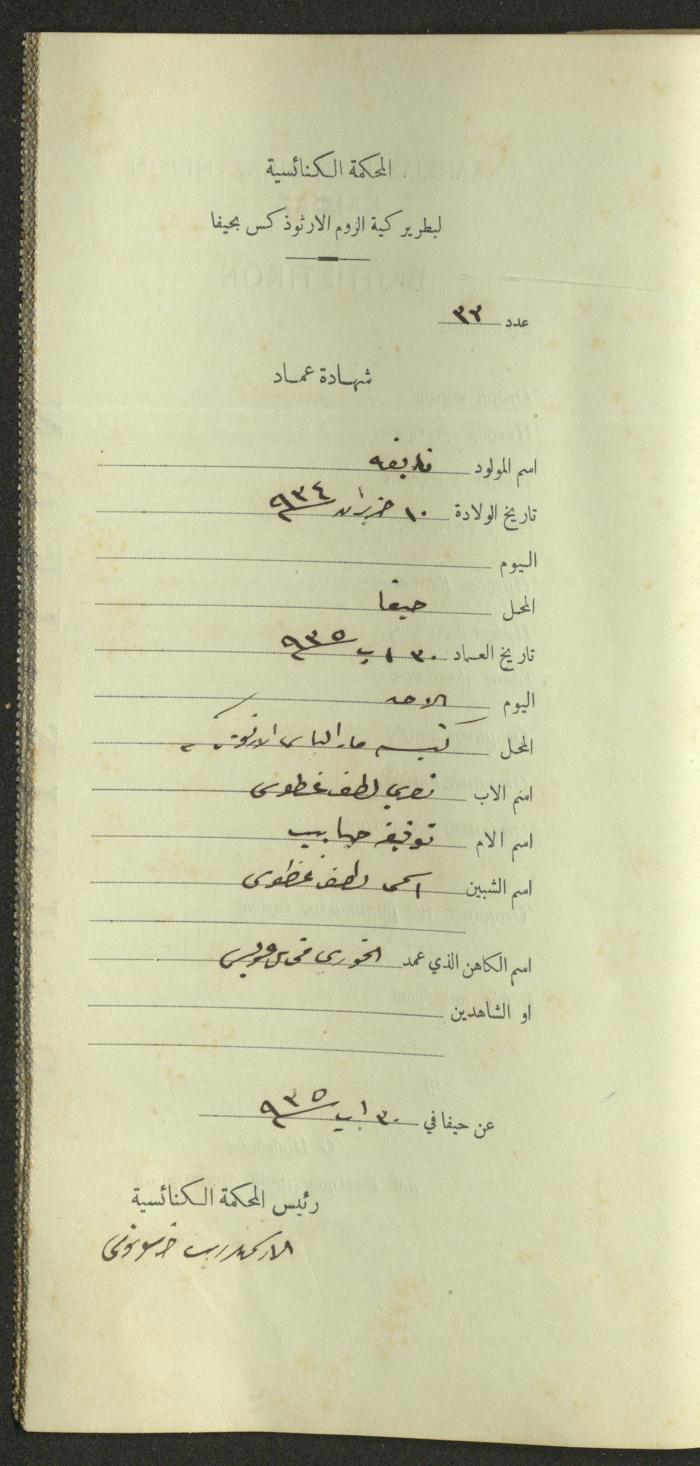 المحكمة الكنائسية
لبطريركية الروم الارثوذكس بحيفا
عدد ٣٢
شهادة عماد
اسم المولود
تاريخ الولادة ١٠ حزيران ٩٣٤
اليوم
المحل حيفا
تاريخ العماد ٣٠ اب ٩٣٥
اليوم الاحد
المحل كنيسة مار الياس
اسم الاب لطف غطوس
اسم الام توفيقه حبايب
اسم الشبين لطف غطوس
اسم الكاهن الذي عمد الخوري
او الشاهدين
عن حيفا في ٣٠ اب ٩٣٥
رئيس المحكمة الكنائسية